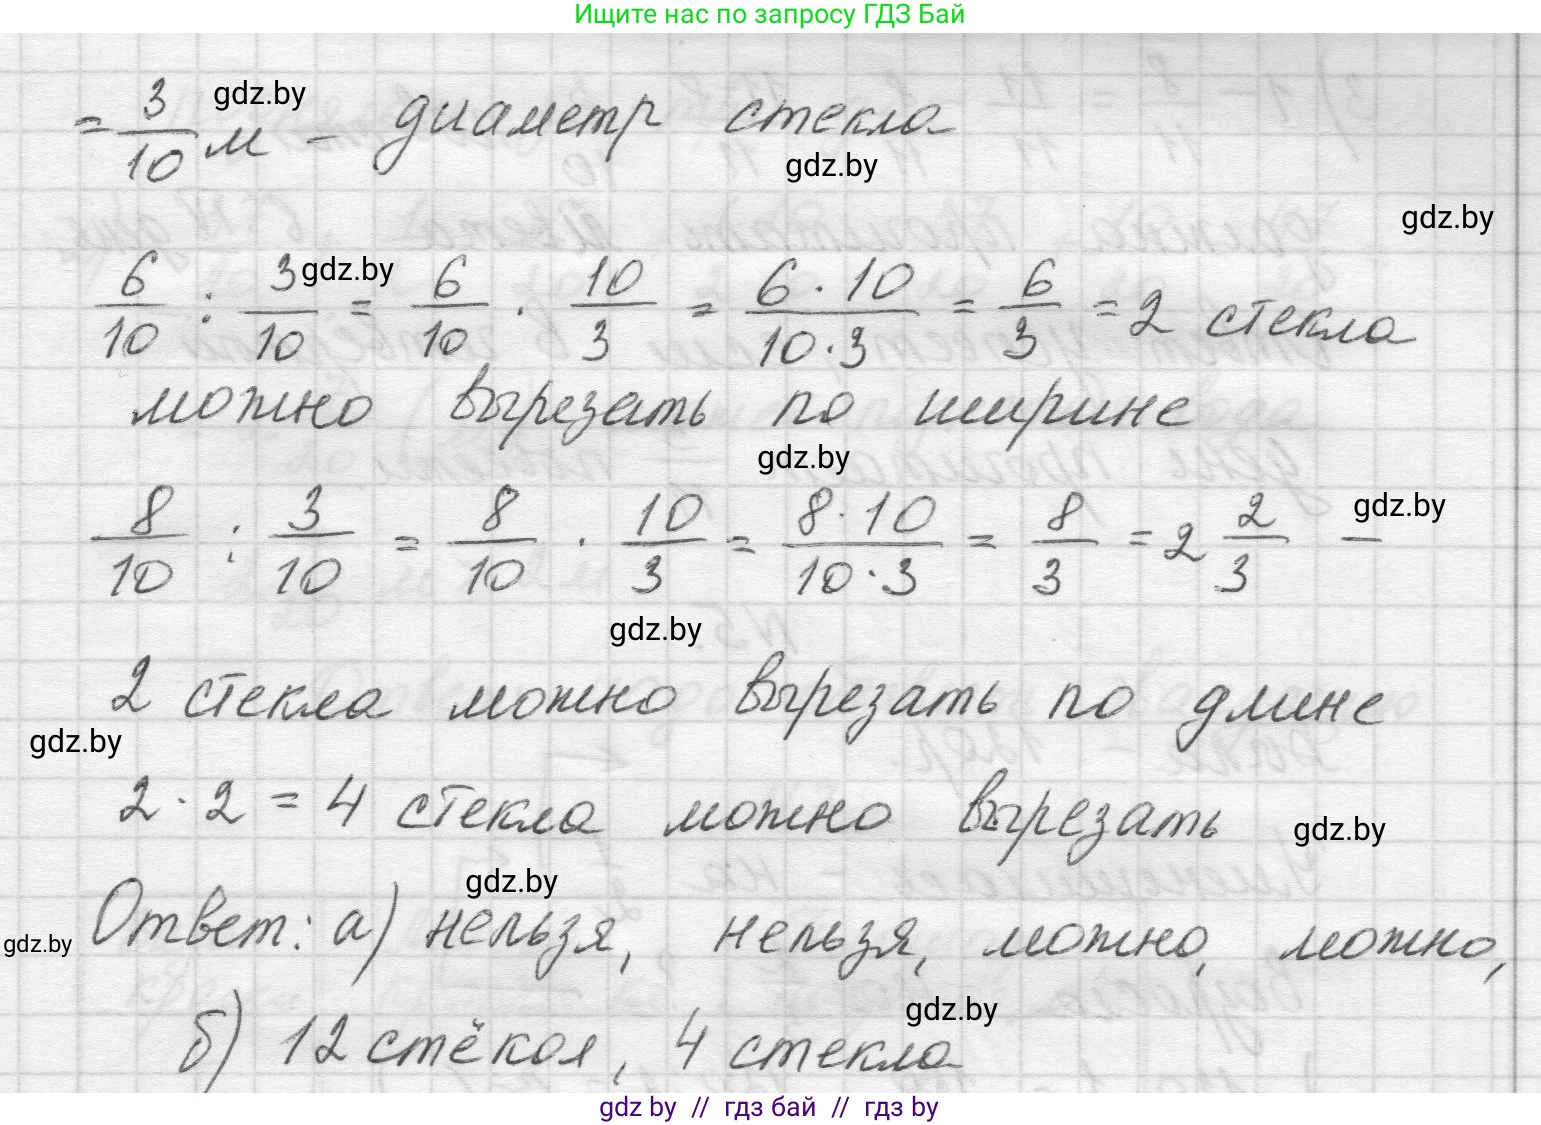 Ищите нас по запросу ГДЗ Бай
= 3/10 м - диаметр стекла
gdz.by
gdz.by
gdz.by
6/10 : 3/10 = 6/10 · 10/3 = 6·10/10·3 = 6/3 = 2 стекла
gdz.by
можно вырезать по ширине
gdz.by
8/10 : 3/10 = 8/10 · 10/3 = 8·10/10·3 = 8/3 = 2 2/3 –
gdz.by
gdz.by
2 стекла можно вырезать по длине
gdz.by
2 · 2 = 4 стекла можно вырезать
gdz.by
gdz.by
Ответ: а) нельзя, нельзя, можно, можно,
gdz.by
gdz.by
б) 12 стёкол, 4 стекла
gdz by // гдз бай // гдз by